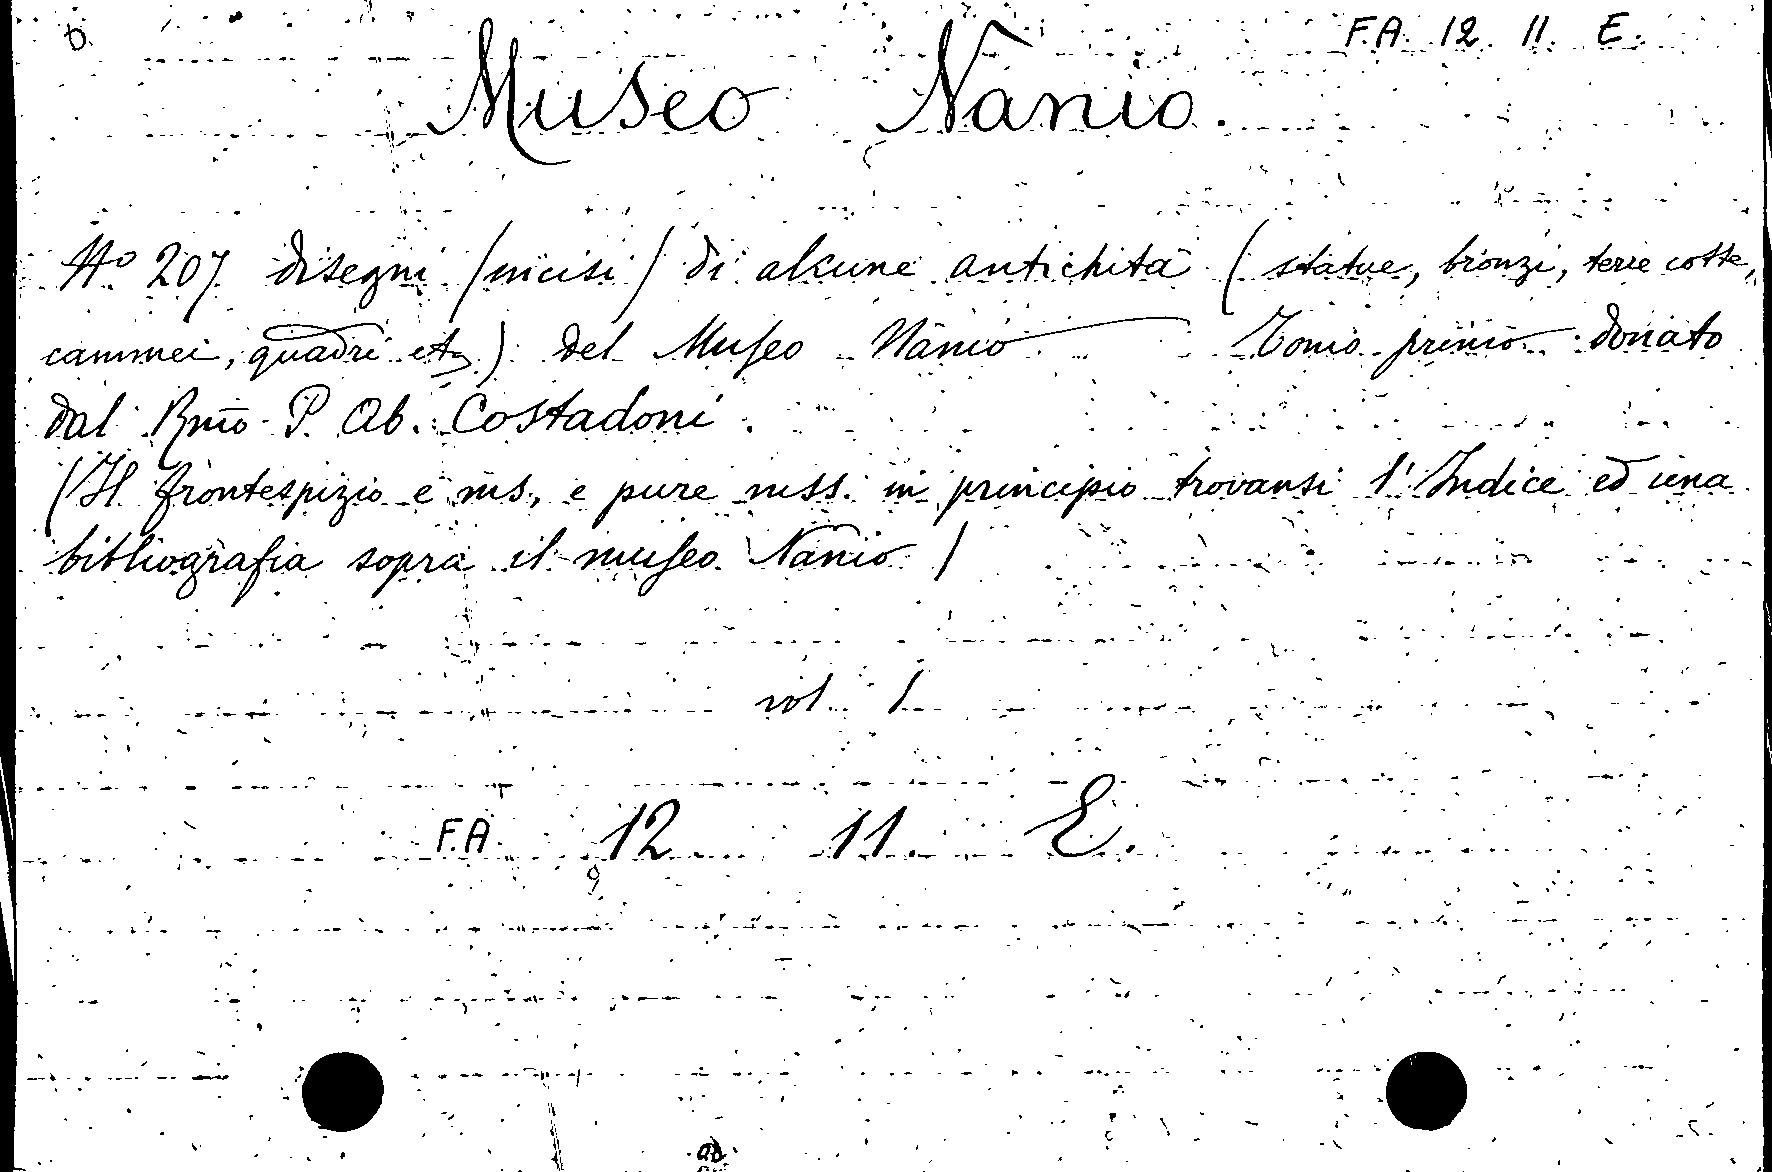 F.A. 12. 11. E.
Museo Nanio.
No 207 disegni (incisi) di alcune antichità (statue, bronzi, terre cotte,
cammei, quadri etc) del Museo Nanio Tomo primo donato
dal Rmo P. Ab. Costadoni.
(Il frontespizio è ms., e pure mss. in principio trovansi l'Indice ed una
bibliografia sopra il museo Nanio)
vol. 1
F.A. 12 11. E.